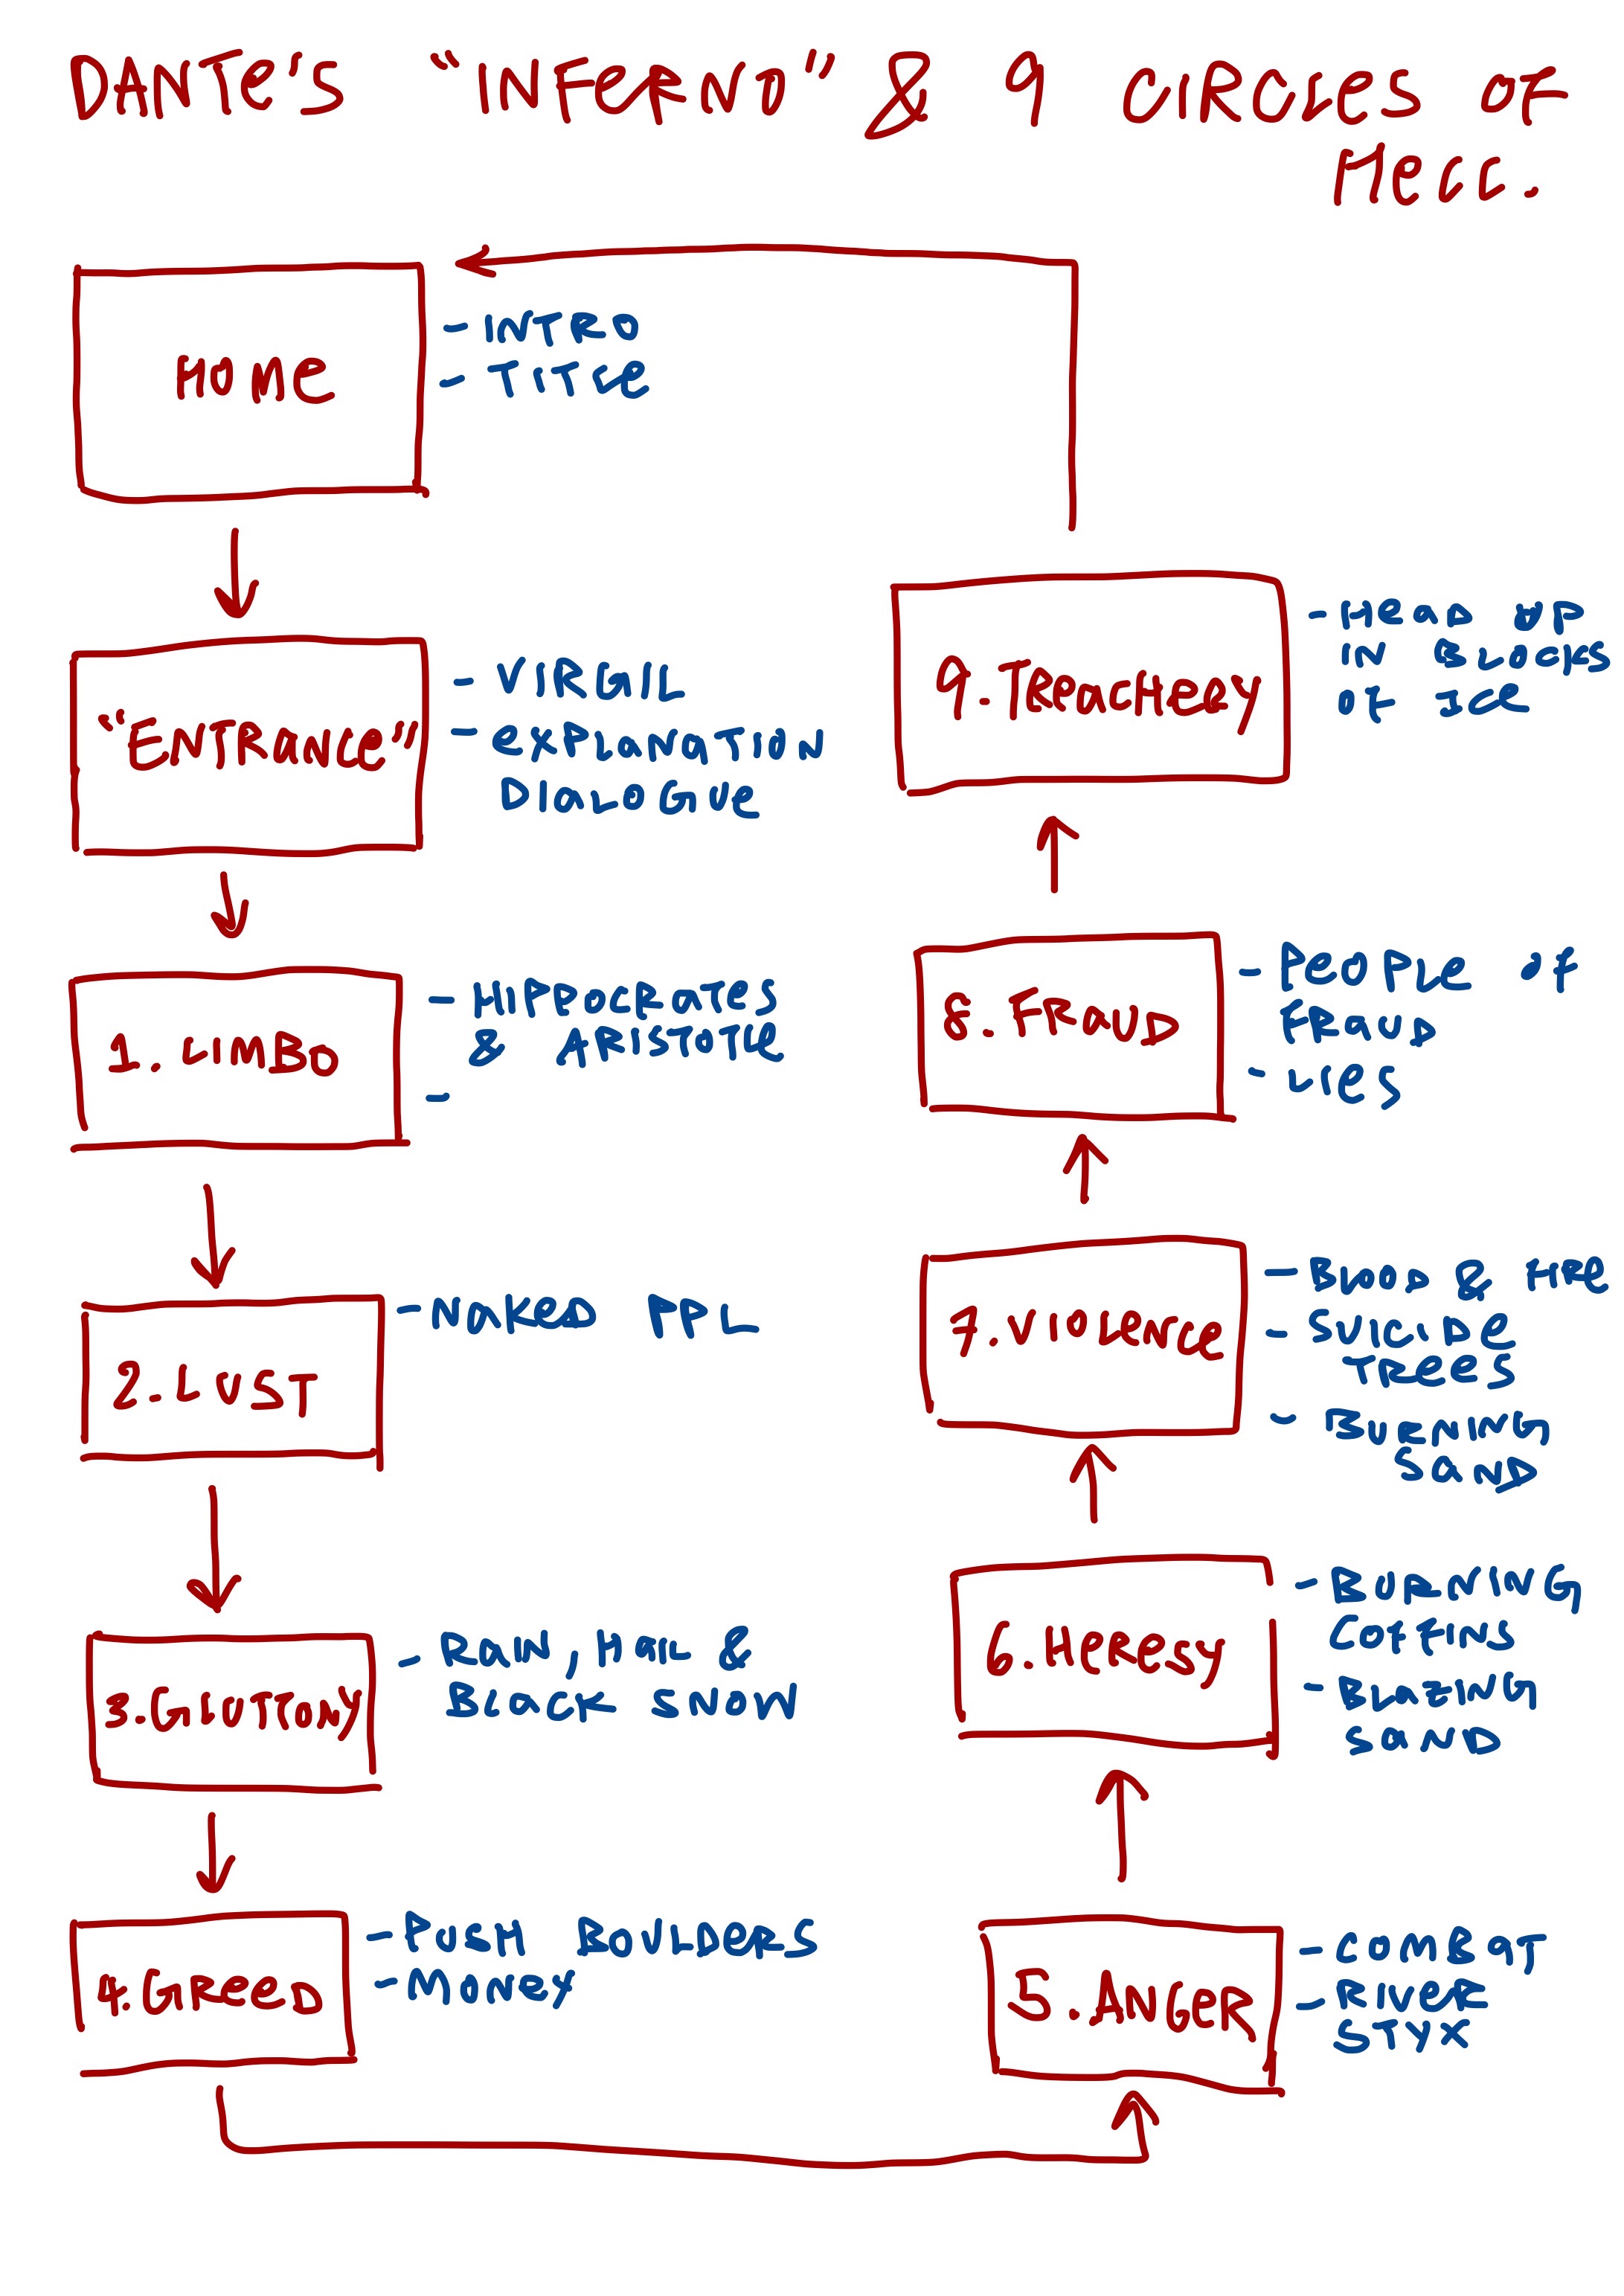 DANTe's "INFeRNO" & 9 CIRCLes OF
Hell.
HOMe
- INTRO
- TITLe
"ENTRance"
- VIRGIL
- exPLanaTION
DIaLOGUe
1. LIMBO
- HIPPOCRaTes
& ARISTOTLe
-
2. LUST
- NaKeD PPL
3. GluTTONy
- RaIN, HaIL &
BLaCK SNOW
4. GReeD
- PUSH BOULDeRS
- MONeY
5. ANGeR
- COMBaT
- RIVeR
STYX
6. HeResy
- BURNING
COFFINS
- BLaZING
SaND
7. VIOLeNCe
- BLOOD & FIRe
- SUICIDe
TReeS
- BURNING
SaND
8. FRaUD
- PeOPLe OF
FRaUD
- LIeS
9. TReaCHeRy
- HeaD UP
IN BLOCKS
OF ICe